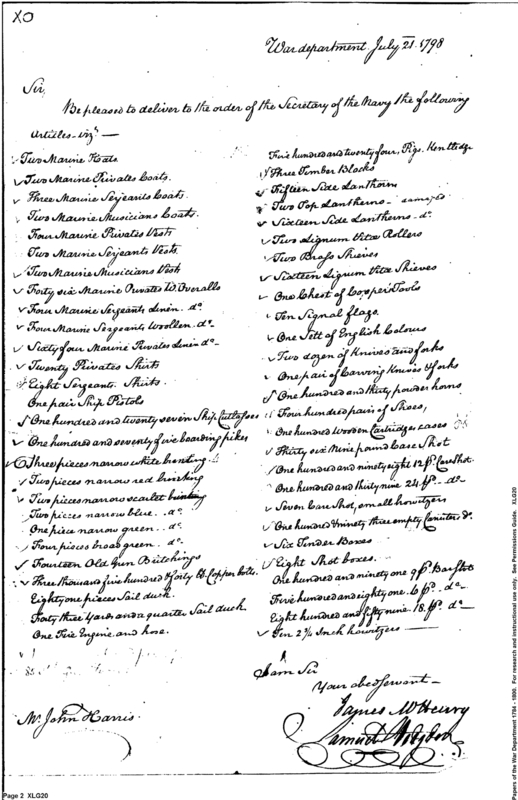 XO
War department July 21. 1798
Sir
Be pleased to deliver to the order of the Secretary of the Navy the following
Articles. vizt —
Two Marine Hats.
Two Marine Privates Coats.
Three Marine Serjeants Coats.
Two Marine Musicians Coats.
Four Marine Privates Vests
Two Marine Serjeants Vests.
Two Marine Musicians Vests
Forty six Marine Privates Wo. Overalls
Four Marine Sergeants Linen. do
Four Marine Sergeants Woollen. do
Sixty four Marine Privates Linen do.
Twenty Privates Shirts
Eight Sergeants Shirts.
One pair Ship Pistols
One hundred and twenty seven Ship Cutlasses
One hundred and seventy five boarding pikes
Three pieces narrow white bunting.
Two pieces narrow red bunting
Two pieces narrow scarlet bunting
Two pieces narrow blue. do.
One piece narrow green. do.
Four pieces broad green. do.
Fourteen Old Gun Britchings
Three thousand five hundred & forty lb. Copper bolts.
Eighty one pieces Sail duck.
Forty three Yards and a quarter Sail duck.
One Fire Engine and hose.
Five hundred and twenty four, Pigs. Kentledge
Three Timber Blocks
Fifteen Side Lanthorns
Two Top Lantherns
Sixteen Side Lantherns. do.
Two Lignum Vitæ Rollers
Two Brass Shieves
Sixteen Lignum Vitæ Shieves
One Chest of Cooper Tools
Ten Signal flags.
One Sett of English Colours
Two dozen of Knives and forks
One pair of Carving Knives & forks
One hundred and thirty powder horns
Four hundred pairs of Shoes,
One hundred Wooden Cartridges cases
Thirty six Nine pound Case Shot
One hundred and ninety eight 12 pr. Case Shot.
One hundred and thirty nine 24 pr. do
Seven Case Shot, small howitzers
One hundred & ninety three empty Canisters do.
Six Tinder Boxes
Eight Shot boxes.
One hundred and ninety one 9 pr. Bar Shot
Five hundred and eighty one. 6 pr. do.
Eight hundred and fifty nine. 18. pr. do
Ten 2¾ Inch howitzers
I am Sir
Your obed Servant —
James McHenry
Samuel Hodgdon
Mr. John Harris.
Page 2 XLG20
Papers of the War Department 1784 - 1800. For research and instructional use only. See Permissions Guide. XLG20